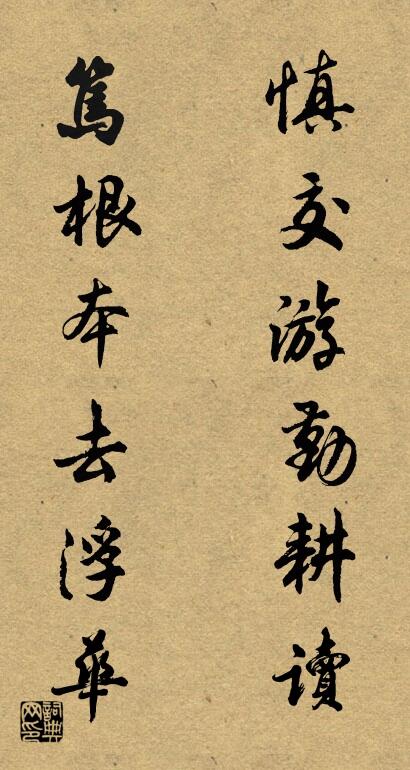 慎交游勤耕讀
篤根本去浮華
詞典網印